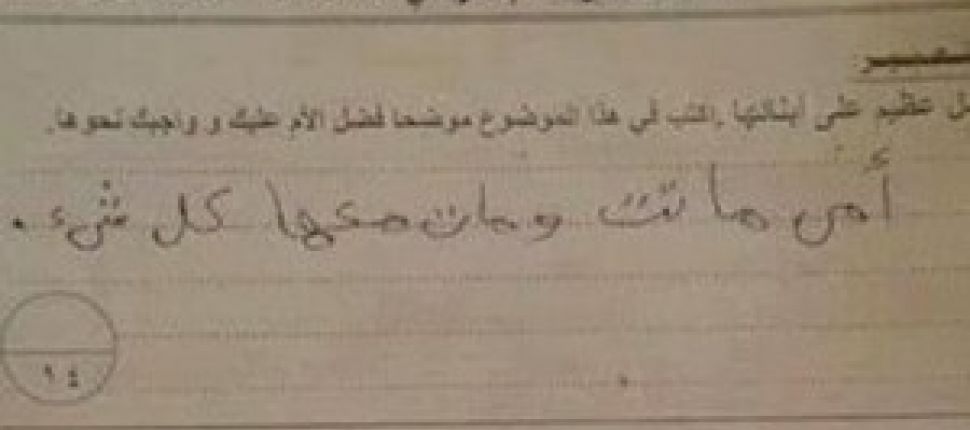 تعبير:
فضل عظيم على أبنائها .اكتب في هذا الموضوع موضحا فضل الأم عليك و واجبك نحوها.
أمي ماتت ومات معها كل شيء .
١٤